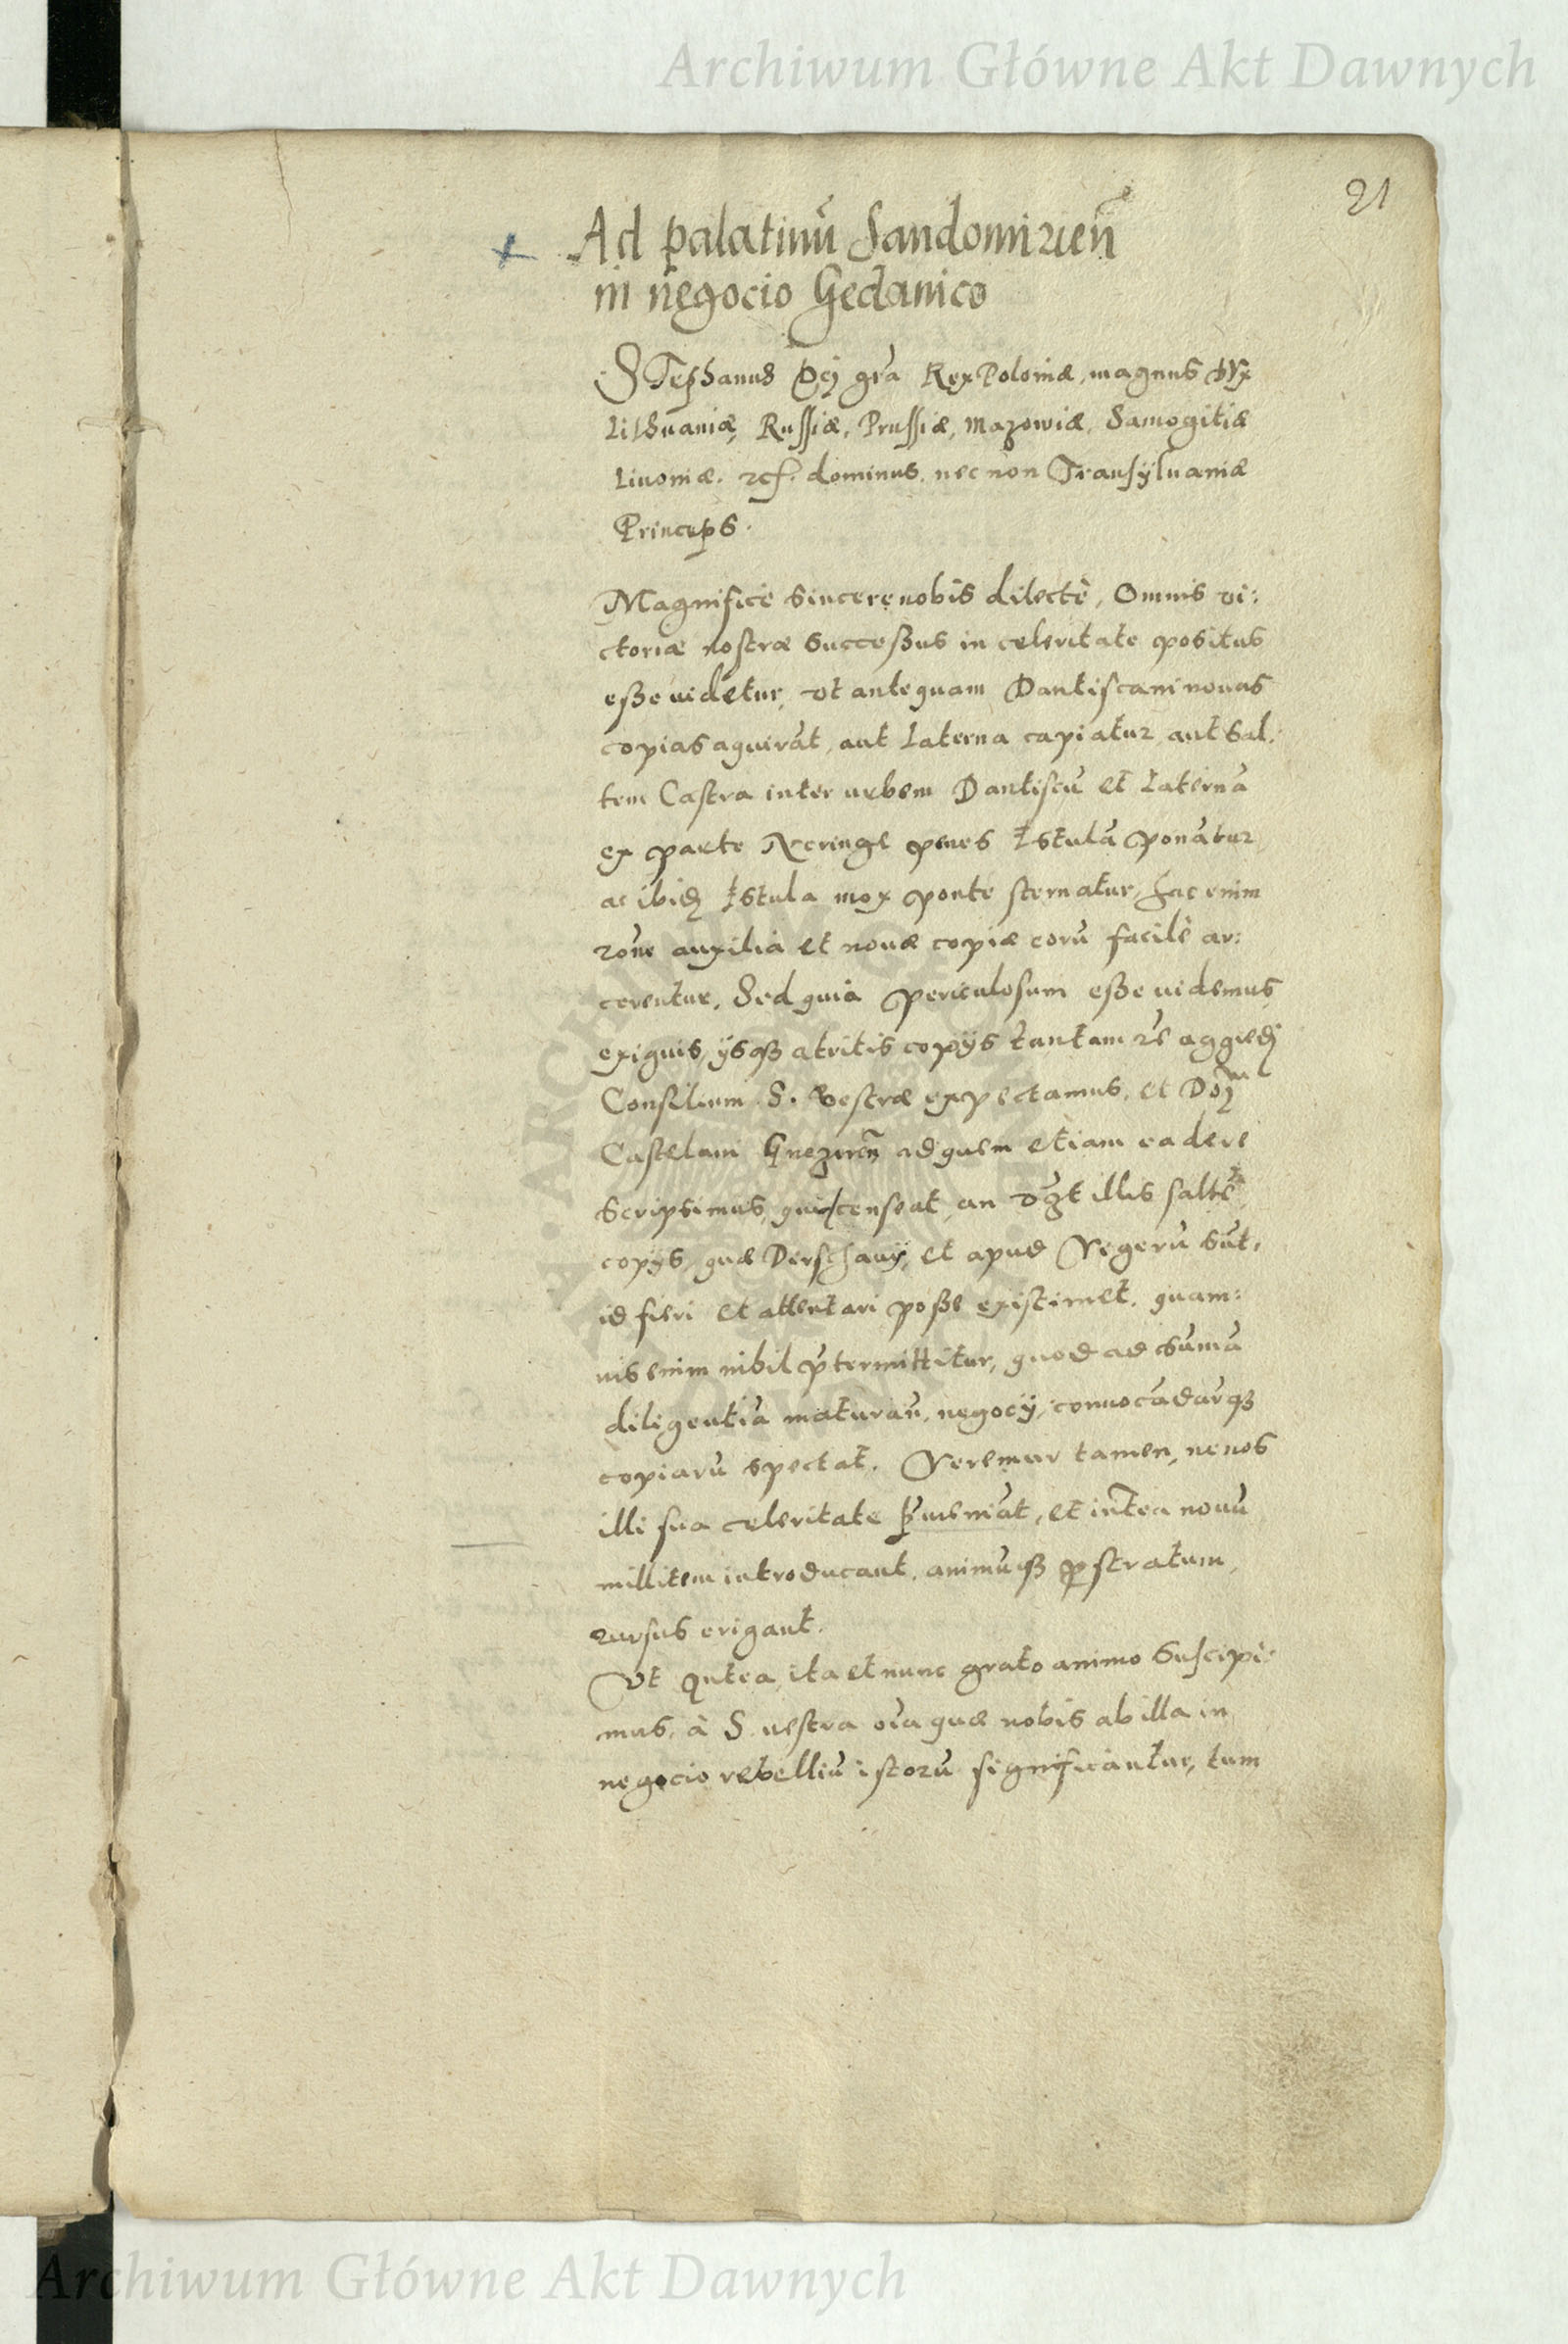 Archiwum Główne Akt Dawnych
21
Ad palatinū Sandomirieñ
in negocio Gedanico
Stephanus Dei gr̃a Rex Poloniæ, magnus Dux
Lithuaniæ, Russiæ, Prussiæ, Mazowiæ, Samogitiæ
Livoniæ. etc. dominus. nec non Transylvaniæ
Princeps.
Magnifice sincere nobis dilecte, Omnis vi:
ctoriæ nostræ successus in celeritate positus
esse uidetur, vt antequam Dantiscani nouas
copias aquirāt, aut Laterna capiatur, aut sal:
tem Castra inter urbem Dantiscū et Laternā
ex parte Neringe penes Istulā ponātur
ac ibidē Istula mox ponte sternatur, hac enim
rōne auxilia et nouæ copiæ eorū facilè ar:
cerentur, Sed quia periculosum esse uidemus
exiguis, ijsq; atritis copijs tantam rē aggredj
Consilium S. Vestræ expectamus, et Dōj
Castelani Gneznēn ad quem etiam ea de re
scripsimus, quid censeat, an illis saltē
copijs, quæ Derschauij, et apud Negerū sūt,
id fieri et attentari posse existimet. quam:
uis enim nihil p̄termittitur, quod ad sūmā
diligentiā maturan, negocij, conuocādarq;
copiarū spectat. Veremur tamen, ne nos
illi sua celeritate p̄ueniāt, et intẽa nouū
millitem introducant, animūq; prostratum,
rursus erigant.
Vt antea, ita et nunc grato animo suscipi:
mus, à S. uestra oīa quæ nobis ab illa in
negocio rebelliū istorū significantur, tum
Archiwum Główne Akt Dawnych